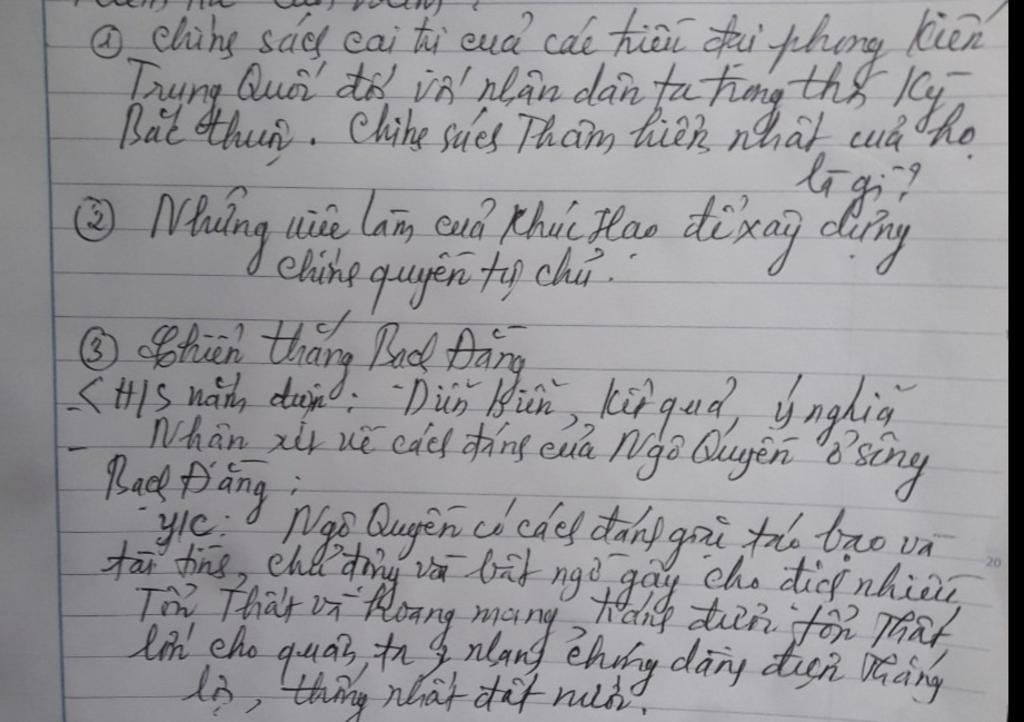 ① Chính sách cai trị của các triều đại phong kiến
Trung Quốc đối với nhân dân ta trong thời kỳ
Bắc thuộc. Chính sách Thâm hiểm nhất của họ
là gì?
② Những việc làm của Khúc Hạo để xây dựng
chính quyền tự chủ.
③ Chiến thắng Bạch Đằng
- < H/S nắm được: - Diễn biến, kết quả, ý nghĩa
- Nhận xét về cách đánh của Ngô Quyền ở sông
Bạch Đằng:
- Y/C: Ngô Quyền có cách đánh giặc táo bạo và
tài tình, chủ động và bất ngờ gây cho địch nhiều
Tổn Thất và hoang mang, tránh được tổn Thất
lớn cho quân ta, nhanh chóng dành được thắng
lợi, thống nhất đất nước.